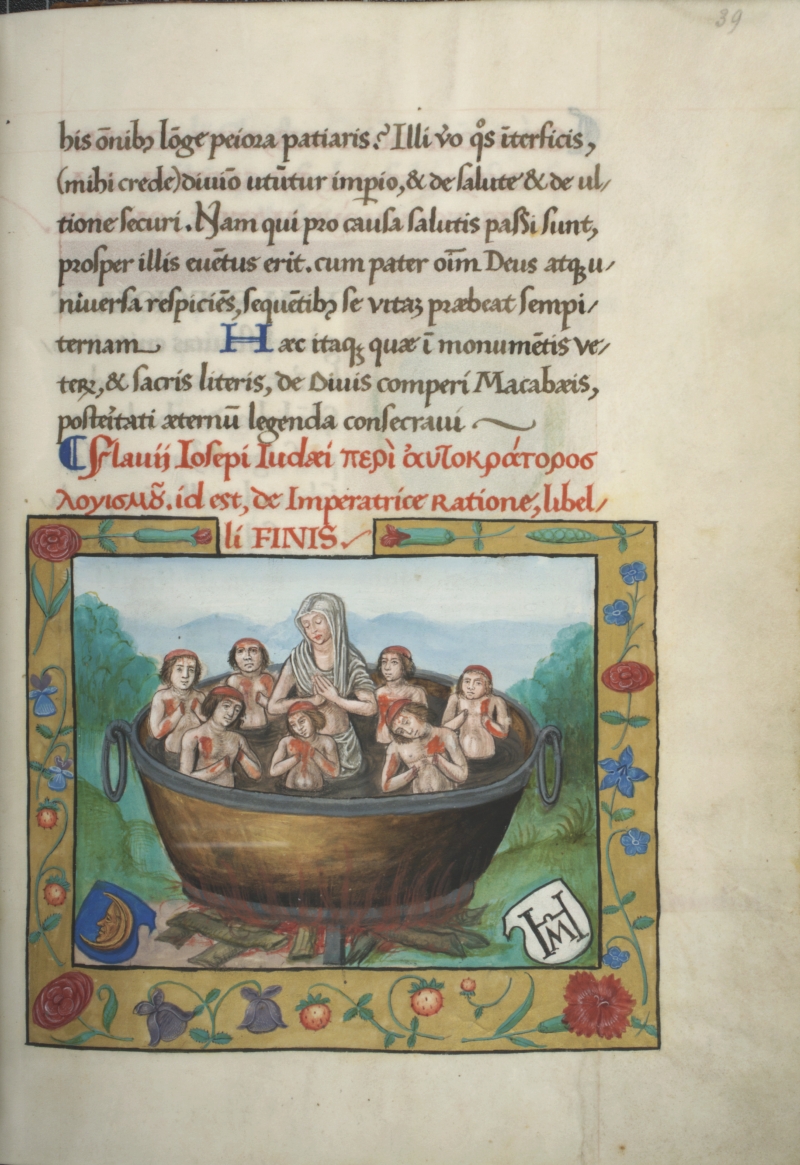 39
his õnibꝯ lõge peiora patiaris? Illi v̊o qͦs ĩterficis,
(mihi crede) diuiõ utũtur imꝑio, & de salute & de ul⸗
tione securi. Nam qui pro causa salutis passi sunt,
prosper illis euẽtus erit. cum pater oĩm Deus atqꝫ u⸗
niuersa respiciẽs, sequẽtibꝯ se vitaꝫ præbeat sempi⸗
ternam Hæc itaqꝫ quæ ĩ monumẽtis ve⸗
teꝝ, & sacris literis, de Diuis comperi Macabæis,
posteritati æternũ legenda consecraui
Flauij Iosepi Iudæi περὶ ἀυτοκράτορος
λογισμȣ̃. id est, de Imperatrice Ratione, libel⸗
li FINIS.
HM